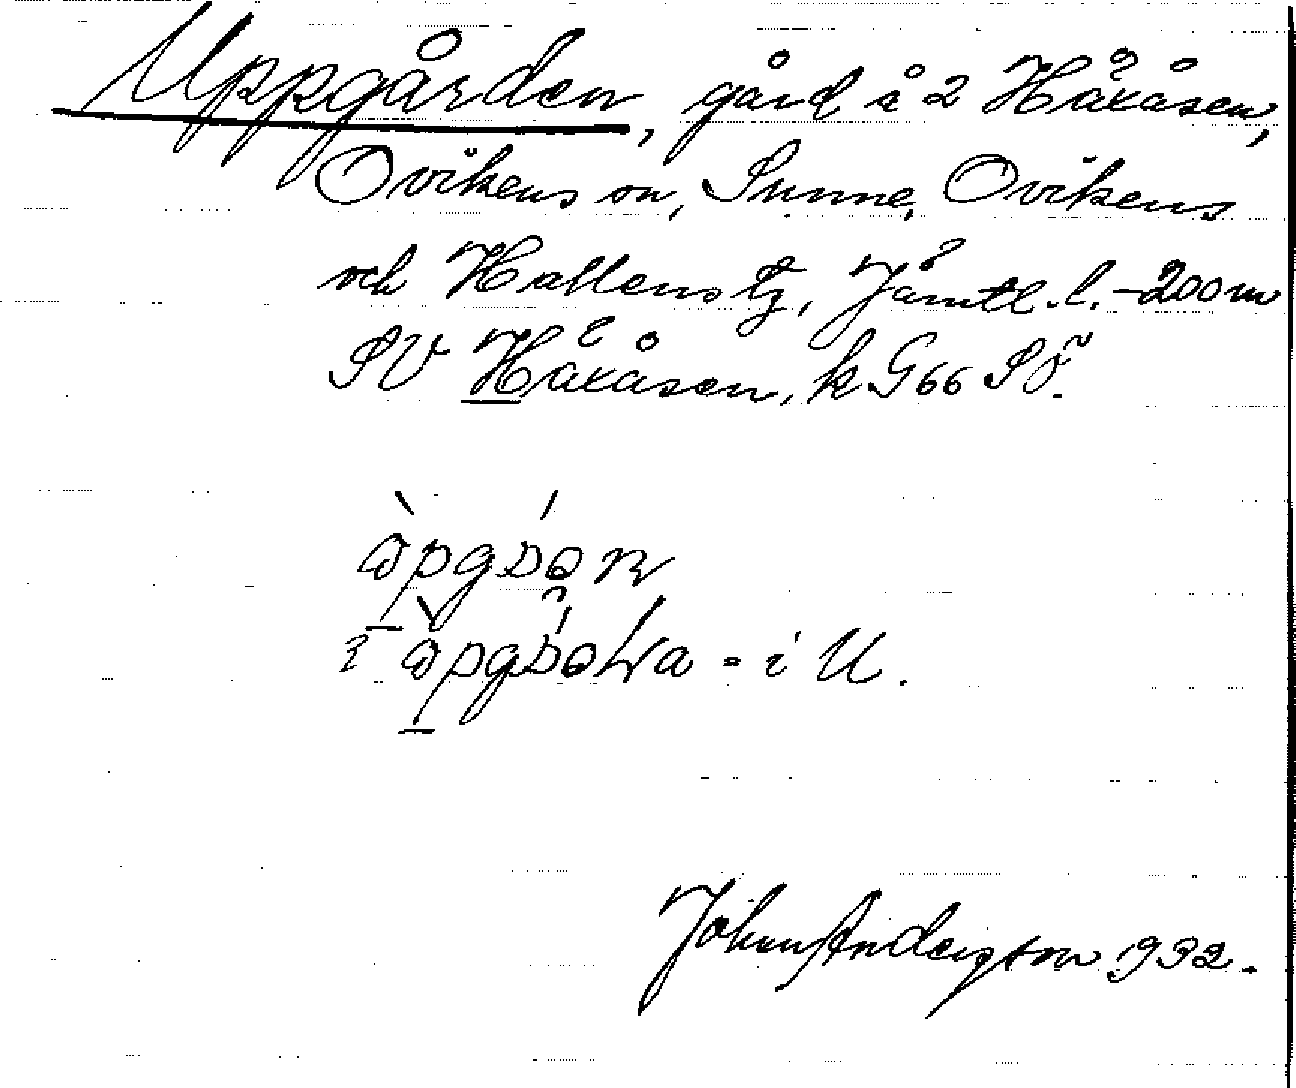 Uppgården, gård i 2 Håkåsen,
Ovikens sn, Sunne, Ovikens
och Hallens tg, Jämtl. l. - 200 m
SV Håkåsen, k G66 SV.
i - i U.
Johan Anderson 1932.